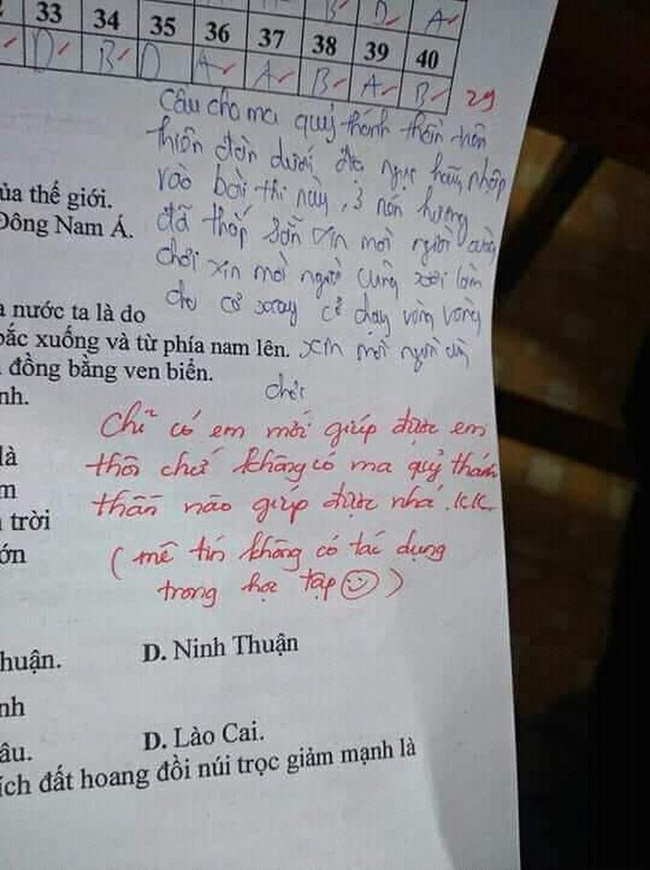 B D A
33 34 35 36 37 38 39 40
D B D A A B A B 29
Cầu cho ma quỷ thánh thần trên
thiên đàn dưới địa ngục hãy nhập
vào bài thi này, 3 nén hương
đã thắp sẵn xin mời người
ủa thế giới.
Đông Nam Á.
chơi xin mời người cùng xơi làm
cho cơ xoay cơ chạy vòng vòng
a nước ta là do
bắc xuống và từ phía nam lên. xin mời người
đồng bằng ven biển.
chơi
nh.
Chỉ có em mới giúp được em
là
thôi chứ không có ma quỷ thánh
m
thần nào giúp được nhá. KK
trời
ớn
(mê tín không có tác dụng
trong học tập)
huận. D. Ninh Thuận
nh
âu. D. Lào Cai.
ích đất hoang đồi núi trọc giảm mạnh là